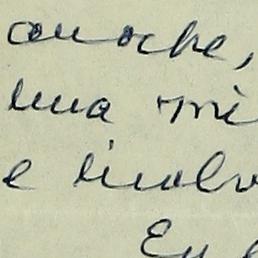 anoche,
una mi
e inolv
En